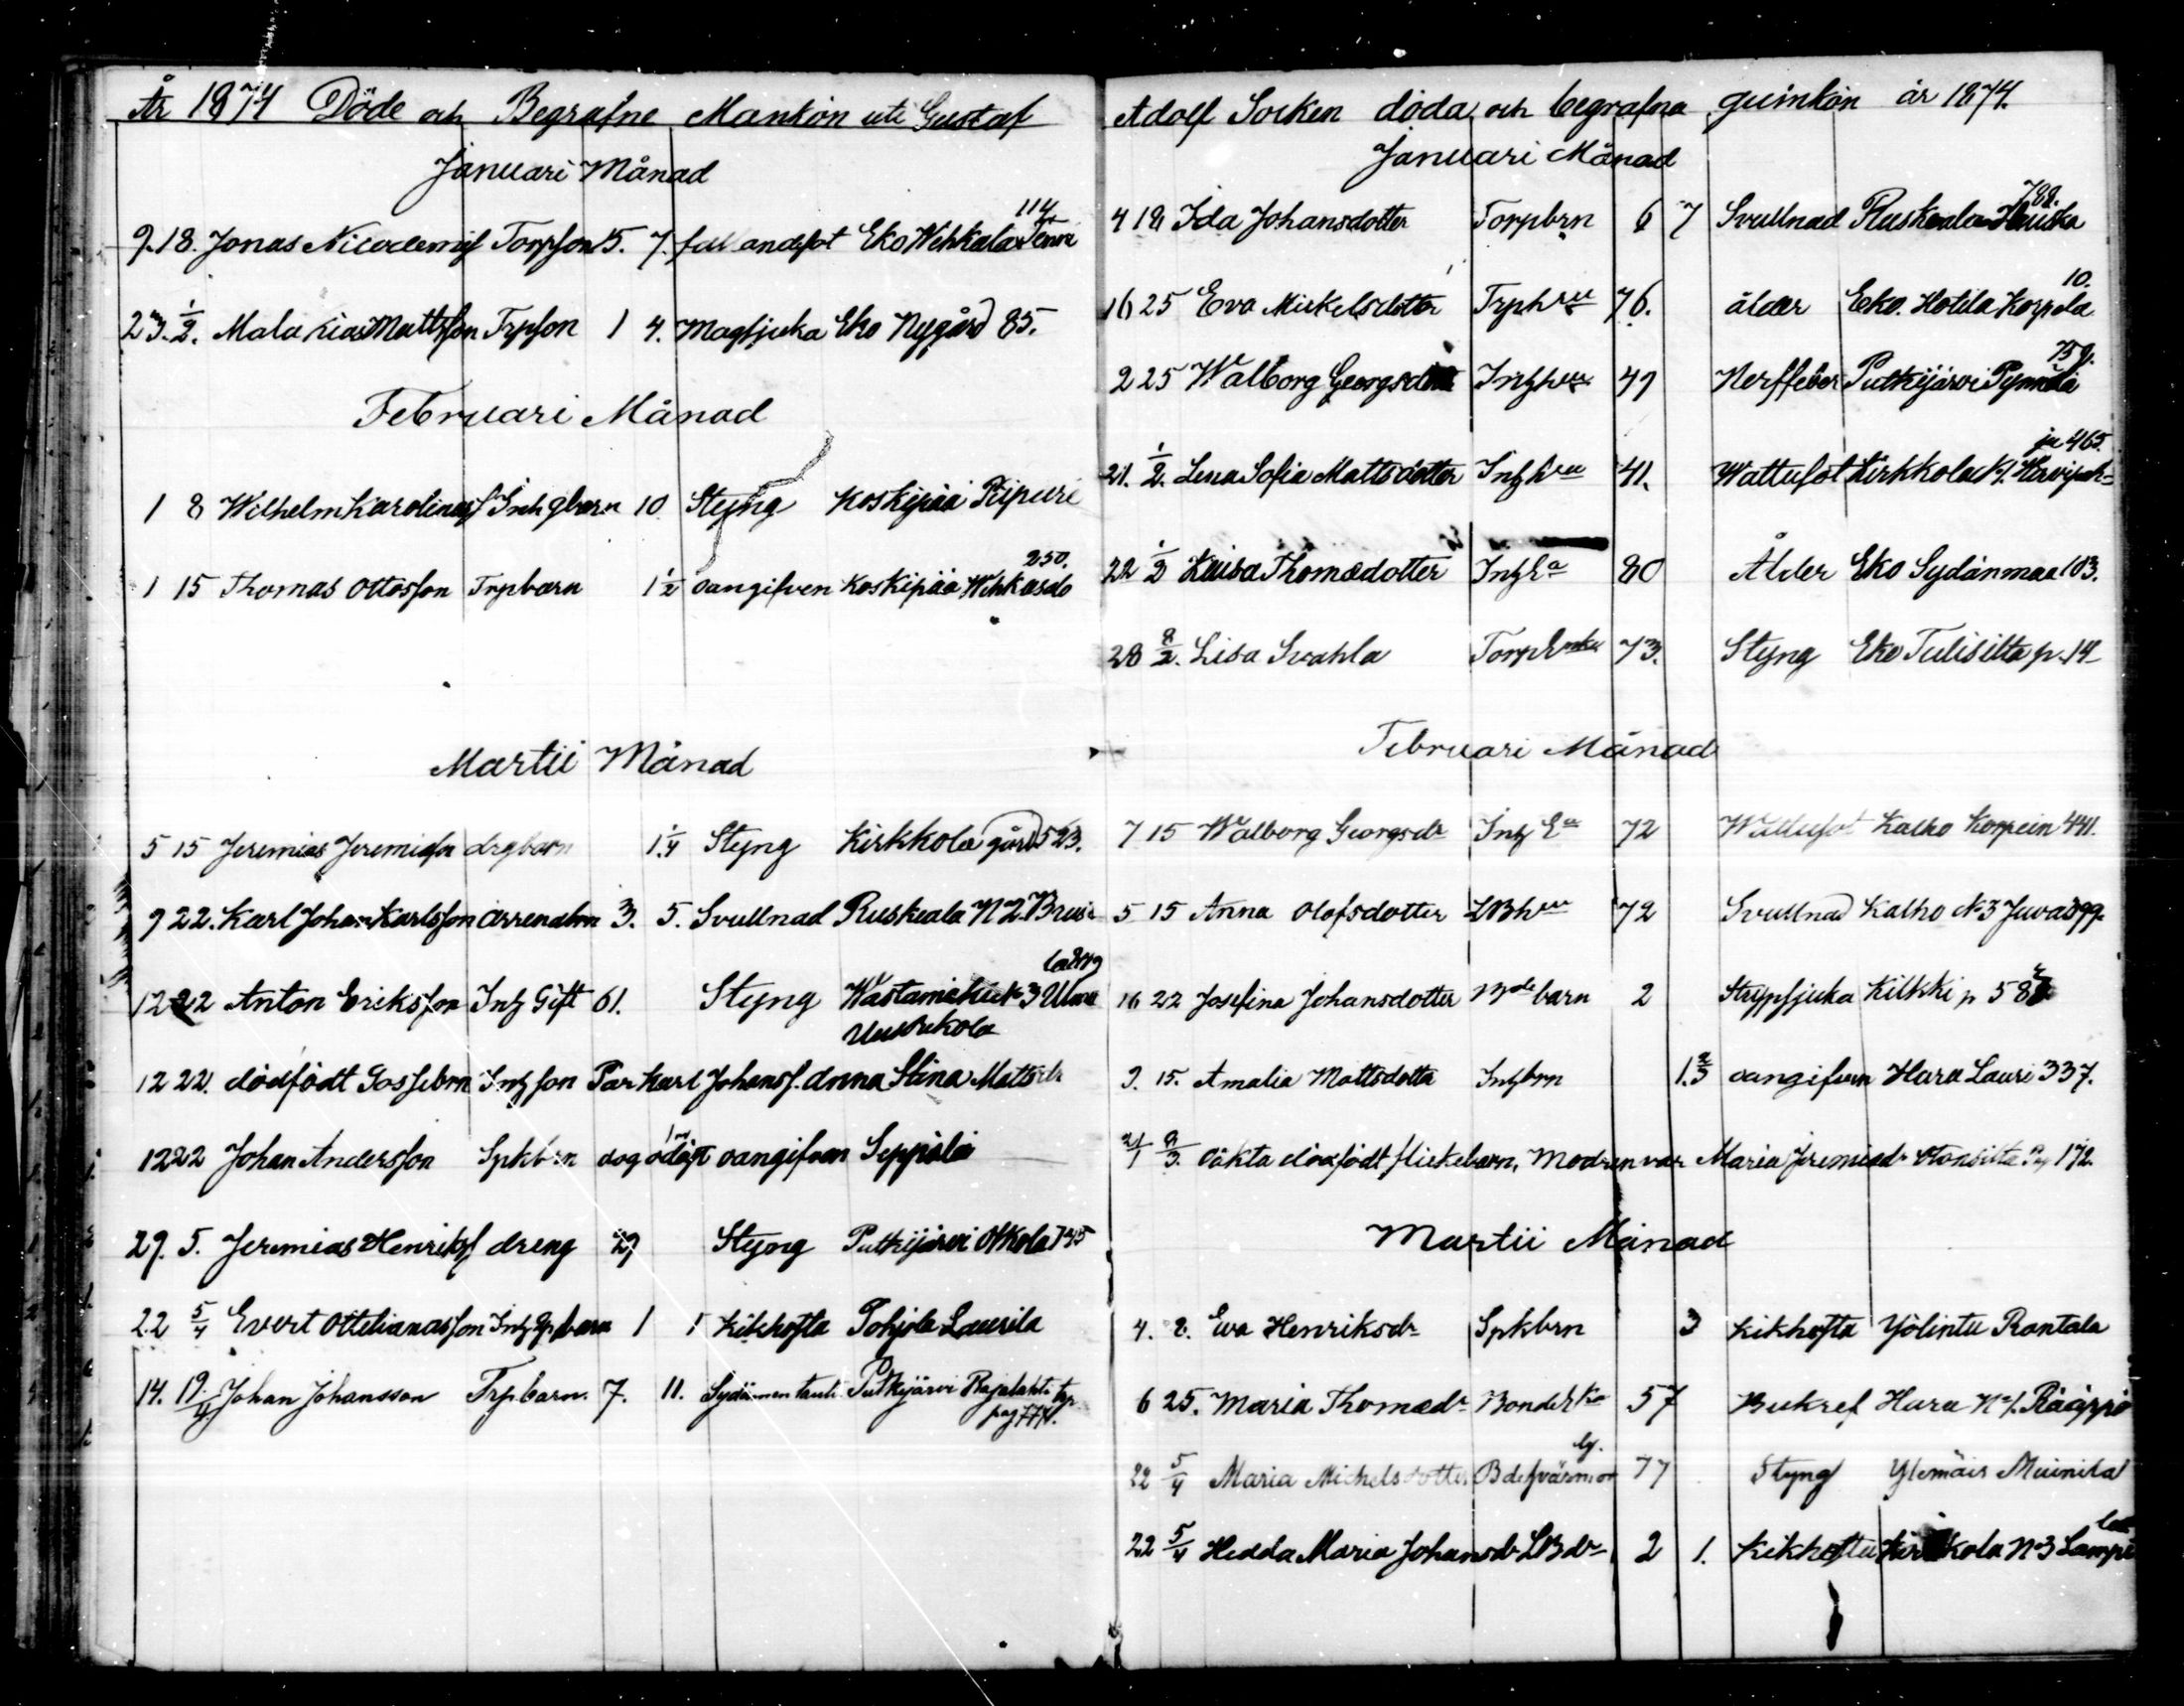 År 1874 Döde och Begrafne Mankön uti Gustaf
Januari Månad
114
9. 18. Jonas Nicodemusf Torpson 15. 7. fallandsot Eko Wehkala
23. 1/2. Malakias Mattsson Trpson 1 4. Magsjuka Eko Nygård 85.
Februari Månad
1 8 Wilhelm Karolinasf Inhgbarn 10 Styng Koskipää Ripuri
250.
1 15 Thomas Ottosson Trpbarn 1 1/2 oangifven Koskipää Wehkasalo
Martii Månad
5 15 Jeremias Jeremiasson drgbarn 1.4 Styng Kirkkola gård 523.
9 22. Karl Johan Karlsson arrendbrn 3. 5. Svullnad Ruskeala N 2
12 22 Anton Eriksson Inh Gift 61. Styng Wastamäki N 3
Uusikola
12 22. dödfödt Gossebrn Inh son Par Karl Johansf. Anna Stina Mattsdr
12 22 Johan Andersson Spkbrn dog odöpt oangifven Seppälä
29. 5. Jeremias Henriksf dreng 29 Styng Putkijärvi 745
22 5/4 Evert Ottelianasson Inh Gpbarn 1 1 Kikhosta Pohjola Laurila
14. 19/4 Johan Johansson Trpbarn. 7. 11. Sydämen tauti Putkijärvi Rajalahti tp
pag 774.
Adolf Socken döda och begrafna quinkön år 1874.
Januari Månad
788.
4 18 Ida Johansdotter Torpbrn 6 7 Svullnad Ruskeala
10.
16 25 Eva Mickelsdotter Trphru 76. ålder Eko. Hotila Korpela
759.
2 25 Walborg Georgsdotter Inhhru 49 Nerffeber Putkijärvi Pynnölä
465.
21. 1/2. Lena Sofia Mattsdotter Inhhru 41. Wattusot Kirkkola N 1.
22 1/2 Luisa Thomædotter InhEa 80 Ålder Eko Sydänmaa 103.
28 8/2. Lisa Svahla TorpEnka 73. Styng Eko Tulisilta p. 14
Februari Månad
7 15 Walborg Georgsdr Inh Ea 72 Wattusot Kalho Korpein 441.
5 15 Anna Olofsdotter LBhru 72 Svullnad Kalho N 3 Juva 399.
16 22 Josefina Johansdotter Bdebarn 2 Strypsjuka Kilkki p 58
9. 15. Amalia Mattsdotter Inhbrn 1.2/3 oangifven Hara Lauri 337.
21/1 8/3. oäkta dödfödt flickebarn, Modren var Maria Jeremiædr 172.
Martii Månad
4. 8. Eva Henriksdr Spkbrn 3 Kikhosta Yölintu Rantala
6 25. Maria Thomædr BondeEka 57 Bukref Hara N 1. Rääppö
22 5/4 Maria Michelsdotter Bdesvärmor 77 Styng Ylemäis Muinila
22 5/4 Hedda Maria Johansdr LBdr 2 1. Kikhosta Kirkkola N 3